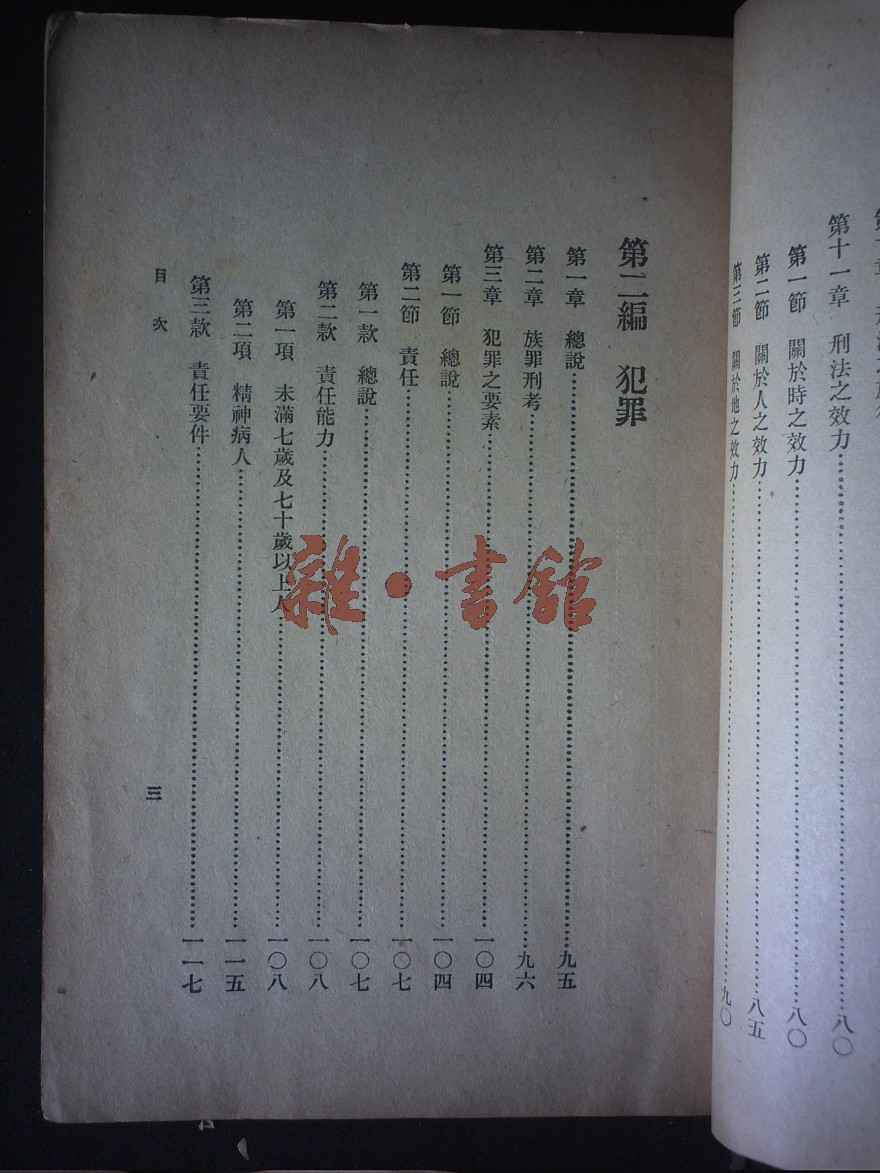 第十一章　刑法之效力……八〇
第一節　關於時之效力……八〇
第二節　關於人之效力……八五
第三節　關於地之效力……九〇
第二編　犯罪
第一章　總說……九五
第二章　族罪刑考……九六
第三章　犯罪之要素……一〇四
第一節　總說……一〇四
第二節　責任……一〇七
第一款　總說……一〇七
第二款　責任能力……一〇八
第一項　未滿七歲及七十歲以上人……一〇八
第二項　精神病人……一一五
第三款　責任要件……一一七
目次
三
雜·書館